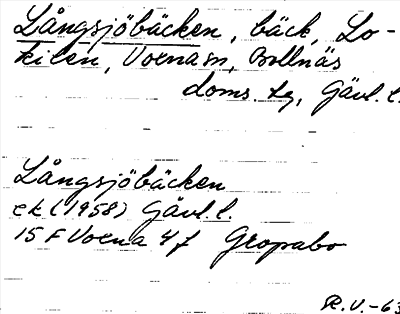 Långsjöbäcken, bäck, Lo-
kilen, Voxnasn, Bollnäs
doms. lg, Gävl. l.
Långsjöbäcken
ek (1958) Gävl. l.
15 F Voxna 4 f Gropabo
R.V.-63